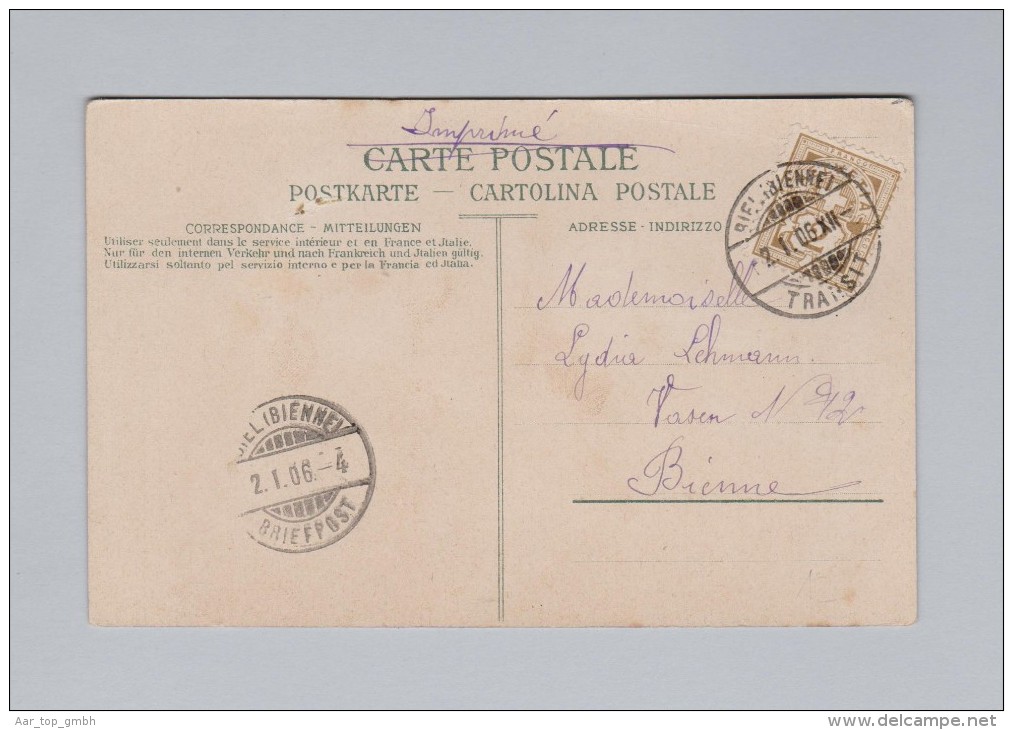 Imprimé
CARTE POSTALE
POSTKARTE — CARTOLINA POSTALE
CORRESPONDANCE - MITTEILUNGEN
Utiliser seulement dans le service intérieur et en France et Jtalie.
Nur für den internen Verkehr und nach Frankreich und Jtalien gültig.
Utilizzarsi soltanto pel servizio interno e per la Francia ed Jtalia.
ADRESSE - INDIRIZZO
BIEL (BIENNE)
2.I.06.XII-
TRANSIT
Mademoiselle
Lydia Lehmann.
Bienne
BIEL (BIENNE)
2.I.06.-4
BRIEFPOST
Aar_top_gmbh
delcampe.net